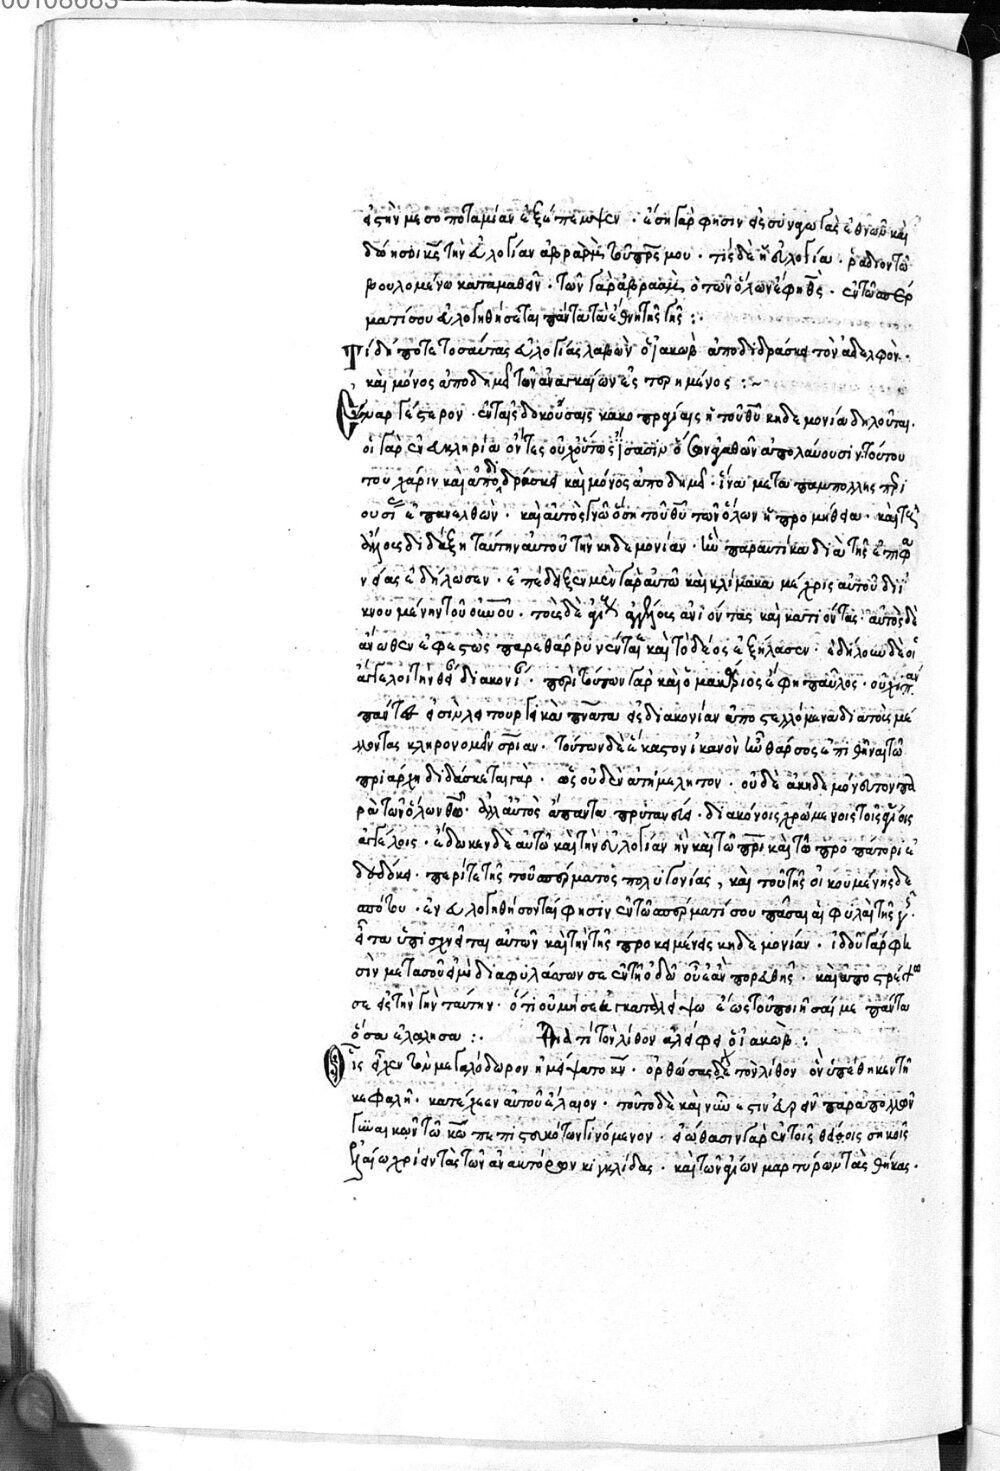 00108683
εἰς τὴν μεσοποταμίαν ἐξέπεμψεν · ἔση γὰρ φησιν εἰς συναγωγὰς ἐθνῶν καὶ
δώη σοι κ̅ς̅ τὴν εὐλογίαν ἀβραὰμ τοῦ π̅ρ̅ς̅ μου · τίς δὲ ἡ εὐλογία · ῥάδιον τῶ
βουλομένω καταμαθεῖν · τῶ γὰρ ἀβραὰμ ὁ τῶν ὅλων ἔφη θ̅ς̅ · ἐν τῶ σπέρ
ματί σου εὐλογηθήσεται πάντα τὰ ἔθνη τῆς γῆς :·
Τί δή ποτε τοσαύτας εὐλογίας λαβὼν ὁ ἰακὼβ ἀποδιδράσκει τὸν ἀδελφὸν ·
καὶ μόνος ἀποδημεῖ τῶν ἀναγκαίων ἐστερημένος :~
Ἐναργέστερον · ἐν ταῖς δοκούσαις κακοπραγίαις ἡ τοῦ θ̅υ̅ κηδεμονία δηλοῦται ·
οἱ γὰρ ἐν εὐκληρία ὄντες οὐχ οὕτως ἴσασιν ὅσων ἀγαθῶν ἀπολαύουσιν · τούτου
που χάριν καὶ ἀποδιδράσκει καὶ μόνος ἀποδημεῖ · ἵνα μετὰ παμπόλλης περι
ουσίας ἐπανελθὼν · καὶ αὐτὸς γνῶ ὅση τοῦ θ̅υ̅ τῶν ὅλων ἡ προμήθεια · καὶ τοὺς
ἄλλους διδάξη ταύτην αὐτοῦ τὴν κηδεμονίαν · ἣν παραυτίκα διὰ τῆς ἐπιφα
νείας ἐδήλωσεν · ἐπέδειξεν μὲν γὰρ αὐτῶ καὶ κλίμακα μέχρις αὐτοῦ διϊ
κνουμένην τοῦ ο̅υ̅ν̅ο̅υ̅ · τοὺς δὲ ἁγίους ἀγγέλους ἀνιόντας καὶ κατιόντας · αὐτὸς δὲ
ἄνωθεν ἐφεστὼς παρεθάρρυνέν τε καὶ τὸ δέος ἐξήλασεν · ἐδήλουν δὲ οἱ
ἄγγελοι τὴν θείαν διακονίαν · περὶ τούτων γὰρ καὶ ὁ μακάριος ἔφη παῦλος · οὐχὶ
πάντες εἰσὶ λειτουργικὰ π̅ν̅α̅τα εἰς διακονίαν ἀποστελλόμενα διὰ τοὺς μέ
λλοντας κληρονομεῖν σ̅ρ̅ίαν · τούτων δὲ ἕκαστον ἱκανὸν ἦν θάρσος ἐπιθεῖναι τῶ
π̅ρ̅ιάρχη διδάσκεται γὰρ · ὡς οὐδὲν ἀτημέλητον · οὐδὲ ἀκηδεμόνευτον πα
ρὰ τῶν ὅλων θ̅ῶ̅ · ἀλλ' αὐτὸς ἅπαντα πρυτανεύει · διακόνοις χρώμενος τοῖς ἁγίοις
ἀγγέλοις · ἔδωκεν δὲ αὐτῶ καὶ τὴν εὐλογίαν ἣν καὶ τῶ π̅ρ̅ὶ καὶ τῶ προπάτορι ἐ
δεδώκει · περί τε τῆς τοῦ σπέρματος πολυγονίας, καὶ τοῦ τῆς οἰκουμένης δε
σπότου · ἐνευλογηθήσονταί φησιν ἐν τῶ σπέρματί σου πᾶσαι αἱ φυλαὶ τῆς γῆς ·
εἶτα ὑπισχνεῖται αὐτῶ καὶ τὴν τῆς προκειμένης κηδεμονίαν · ἰδοὺ γάρ φη
σὶν μετὰ σοῦ εἰμὶ διαφυλάσσων σε ἐν τῆ ὁδῶ οὗ ἐὰν πορευθῆς · καὶ ἀποστρέψω
σε εἰς τὴν γῆν ταύτην · ὅτι οὐ μή σε ἐγκαταλείψω ἕως τοῦ ποιῆσαί με πάντα
ὅσα ἐλάλησα :· Διὰ τί τὸν λίθον ἀλείφει ὁ ἰακὼβ :
Οἷς εἶχεν τὸν μεγαλόδωρον ἠμείψατο κ̅ν̅ · ὀρθώσας δὲ τὸν λίθον ὃν ὑπέθηκεν τῆ
κεφαλῆ · κατέχεεν αὐτοῦ ἔλαιον · τοῦτο δὲ καὶ νῦν ἐστιν εὑρεῖν παρὰ πολλῶν
γυναικῶν τῶ κ̅ω̅ πεπιστευκότων γινόμενον · εἰώθασιν γὰρ ἐν τοῖς θείοις σηκοῖς
ἐλαίω χρίειν τὰς τῶν ἀνακτόρων κιγκλίδας · καὶ τῶν ἁγίων μαρτύρων τὰς θήκας ·